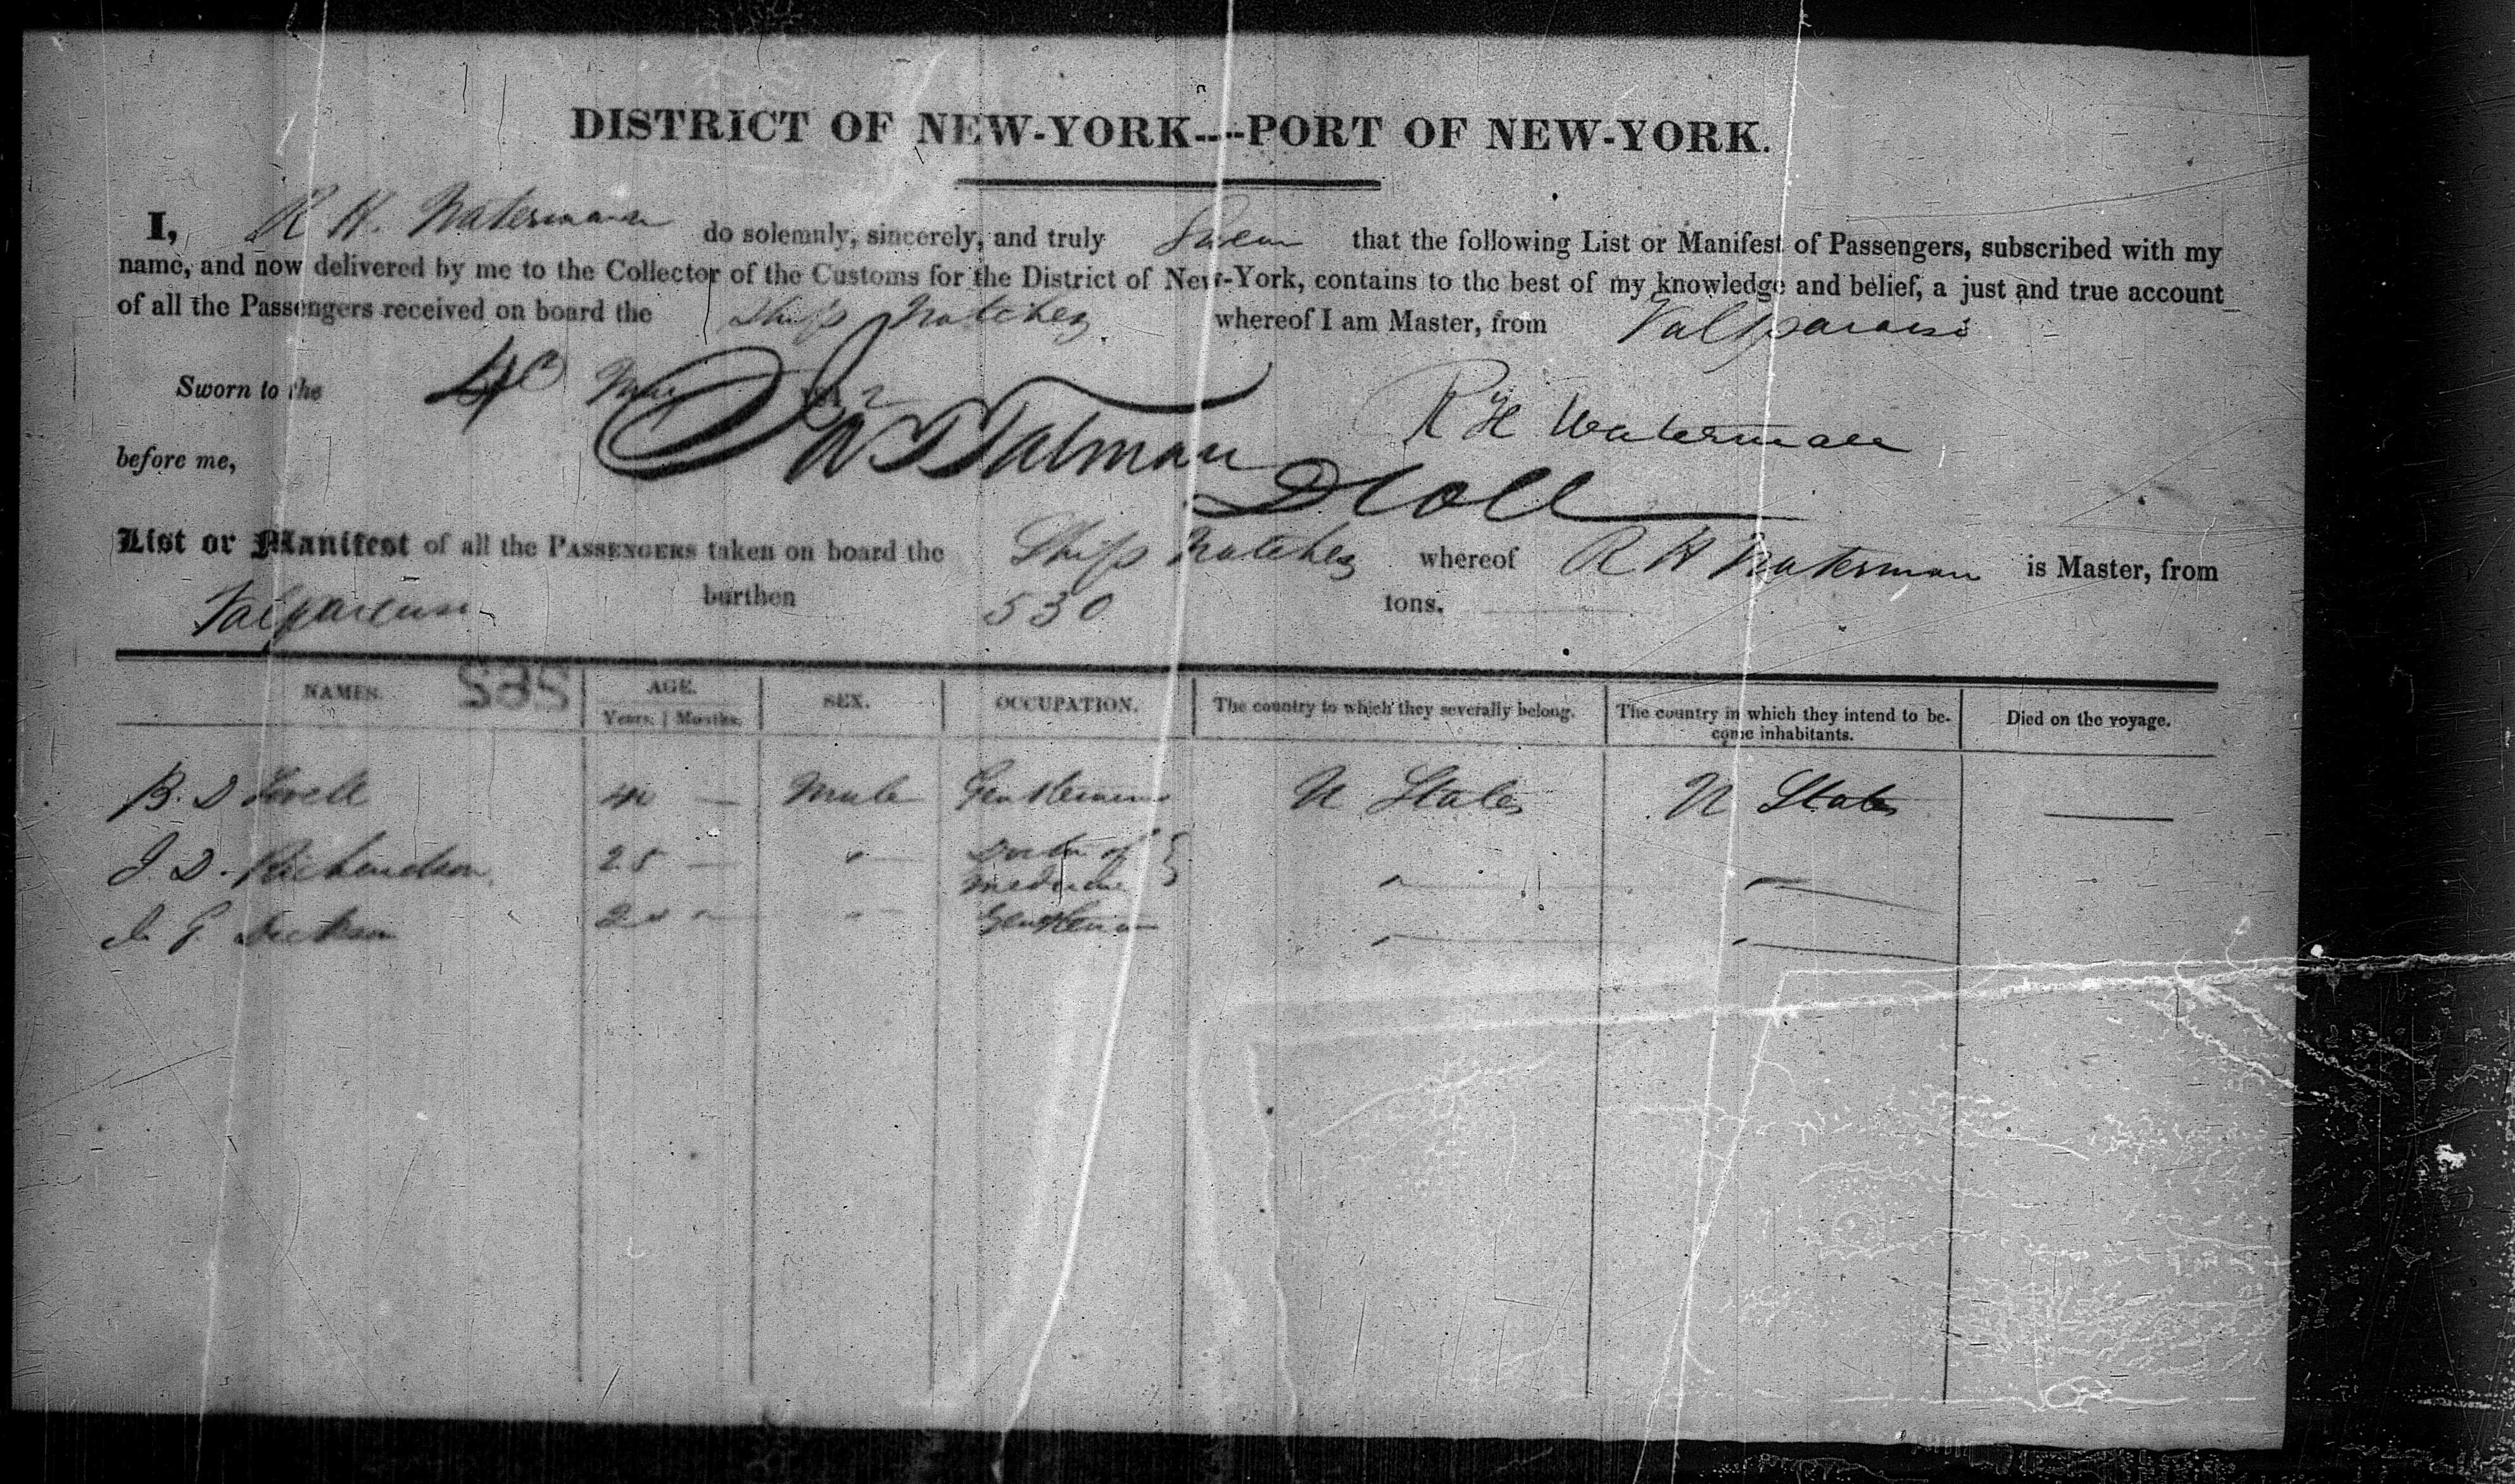 DISTRICT OF NEW-YORK---PORT OF NEW-YORK.
I, R H. Waterman do solemnly, sincerely, and truly Swear that the following List or Manifest of Passengers, subscribed with my
name, and now delivered by me to the Collector of the Customs for the District of New-York, contains to the best of my knowledge and belief, a just and true account
of all the Passengers received on board the Ship Natchez whereof I am Master, from Valparaiso
Sworn to the 4
R H Waterman
before me, Talman
D Coll
List or Manifest of all the PASSENGERS taken on board the Ship Natchez whereof R H Waterman is Master, from
Valparaiso burthen 530 tons.
NAMES. 585 AGE. SEX. OCCUPATION. The country to which they severally belong. The country in which they intend to be- Died on the voyage.
Years. | Months. come inhabitants.
B. D Lovell 40 — Male Gentleman U States U States —
J. D. Richardson 25 — " — Doctor of } " — " —
medicine
G. Dickson " — Gentleman " — " —